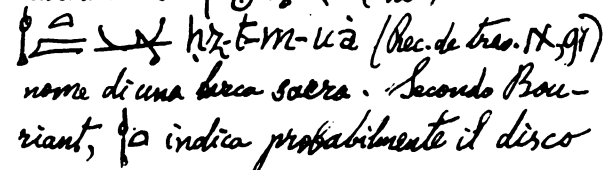 ḥz-t-m-uà (Rec. de trav. IX, 91)
nome di una barca sacra. Secondo Bou-
riant, indica probabilmente il disco